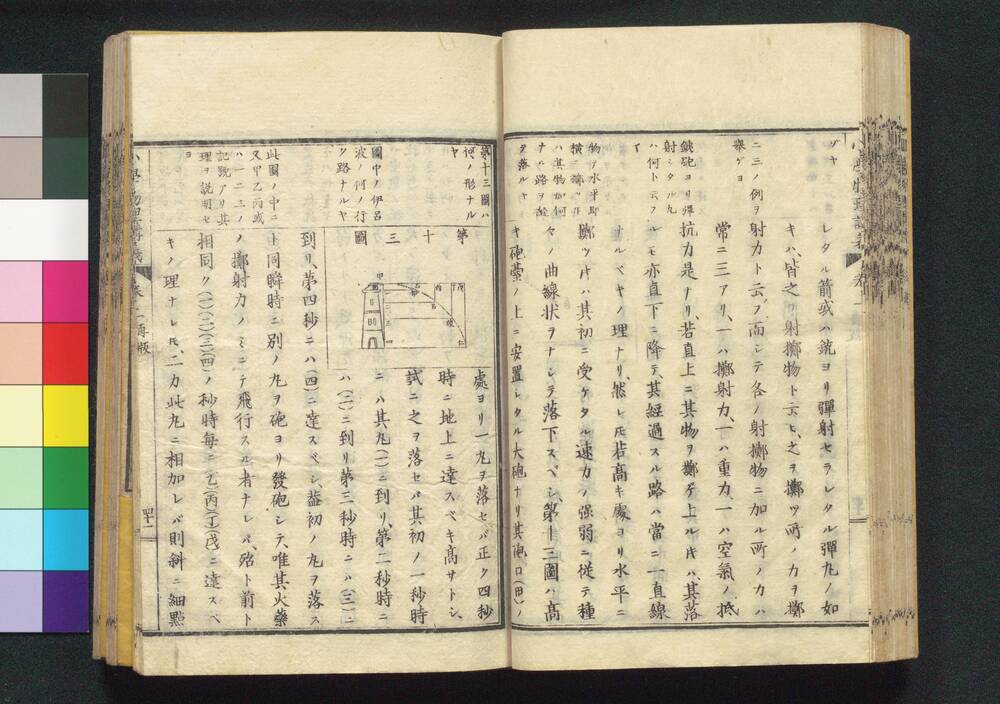 ヅヤ
二三ノ例ヲ
擧ゲヨ
銃砲ヨリ彈
射シタル丸
ハ何ト云フ
物ヲ水平即
横ニ擲ツ片
ハ其物如何
ナル路ヲ經
テ落ルヤ
レタル箭或ハ銃ヨリ彈射セラレタル彈丸ノ如
キハ、皆之ヲ射擲物ト云ヒ、之ヲ擲ツ所ノカヲ擲
射力ト云フ、而シテ各ノ射擲物ニ加ル所ノカハ
常ニ三アリ、一ハ擲射力、一ハ重力、一ハ空氣ノ抵
抗力是ナリ、若直上ニ其物ヲ擲ゲ上ル片ハ、其落
ルモ亦直下ニ降テ、其經過スル路ハ當ニ一直線
ナルベキノ理ナリ、然レ𪜈若高キ處ヨリ水平ニ
擲ツ片ハ其初ニ受ケタル速力ノ强弱ニ從テ種
々ノ曲線狀ヲナシテ落下スベシ、第十三圖ハ高
キ砲臺ノ上ニ安置シタル大砲ナリ其砲口(甲)ノ
第十三圖ハ
何ノ形ナル
ヤ
圖中ノ伊呂
波ハ何ノ行
ク路ナルヤ
此圖ノ中ニ
又甲乙丙或
ハ一二三ノ
記號アリ其
理ヲ説明セ
ヨ
第十三圖
處ヨリ一丸ヲ落セバ正ク四秒
時ニ地上ニ達スベキ高サトシ、
試ニ之ヲ落セバ其初ノ一秒時
ニハ其丸(一)ニ到リ、第二秒時ニ
ハ(二)ニ到リ第三秒時ニハ(三)ニ
到リ、第四秒ニハ(四)ニ達スベシ、蓋初ノ丸ヲ落ス
ト同瞬時ニ別ノ丸ヲ砲ヨリ發砲シテ、唯其火藥
ノ擲射力ノミニテ飛行スル者ナレバ、殆ト前ト
相同ク(一)(二)(三)(四)ノ秒時每ニ(乙)(丙)(丁)(戊)ニ達スベ
キノ理ナレ𪜈、二力此丸ニ相加レバ則斜ニ細點